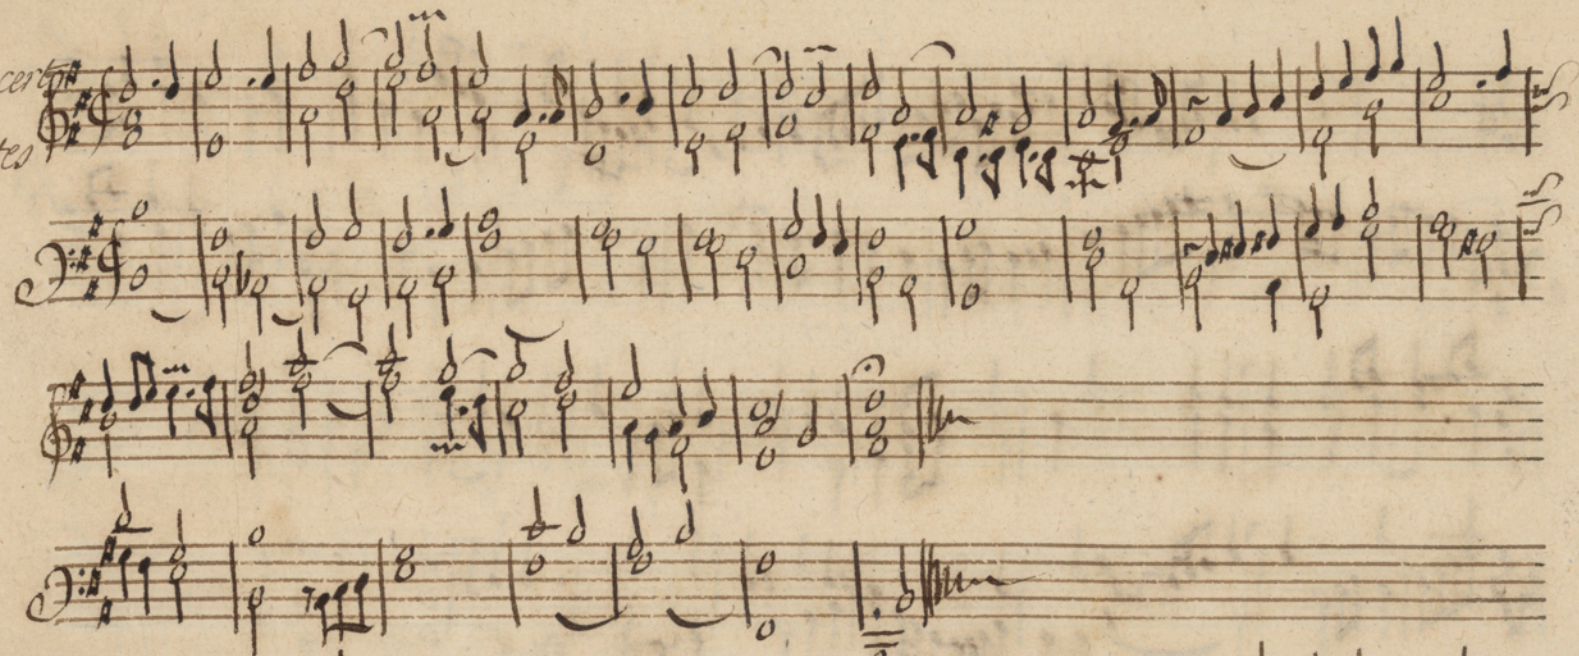 certo
tes